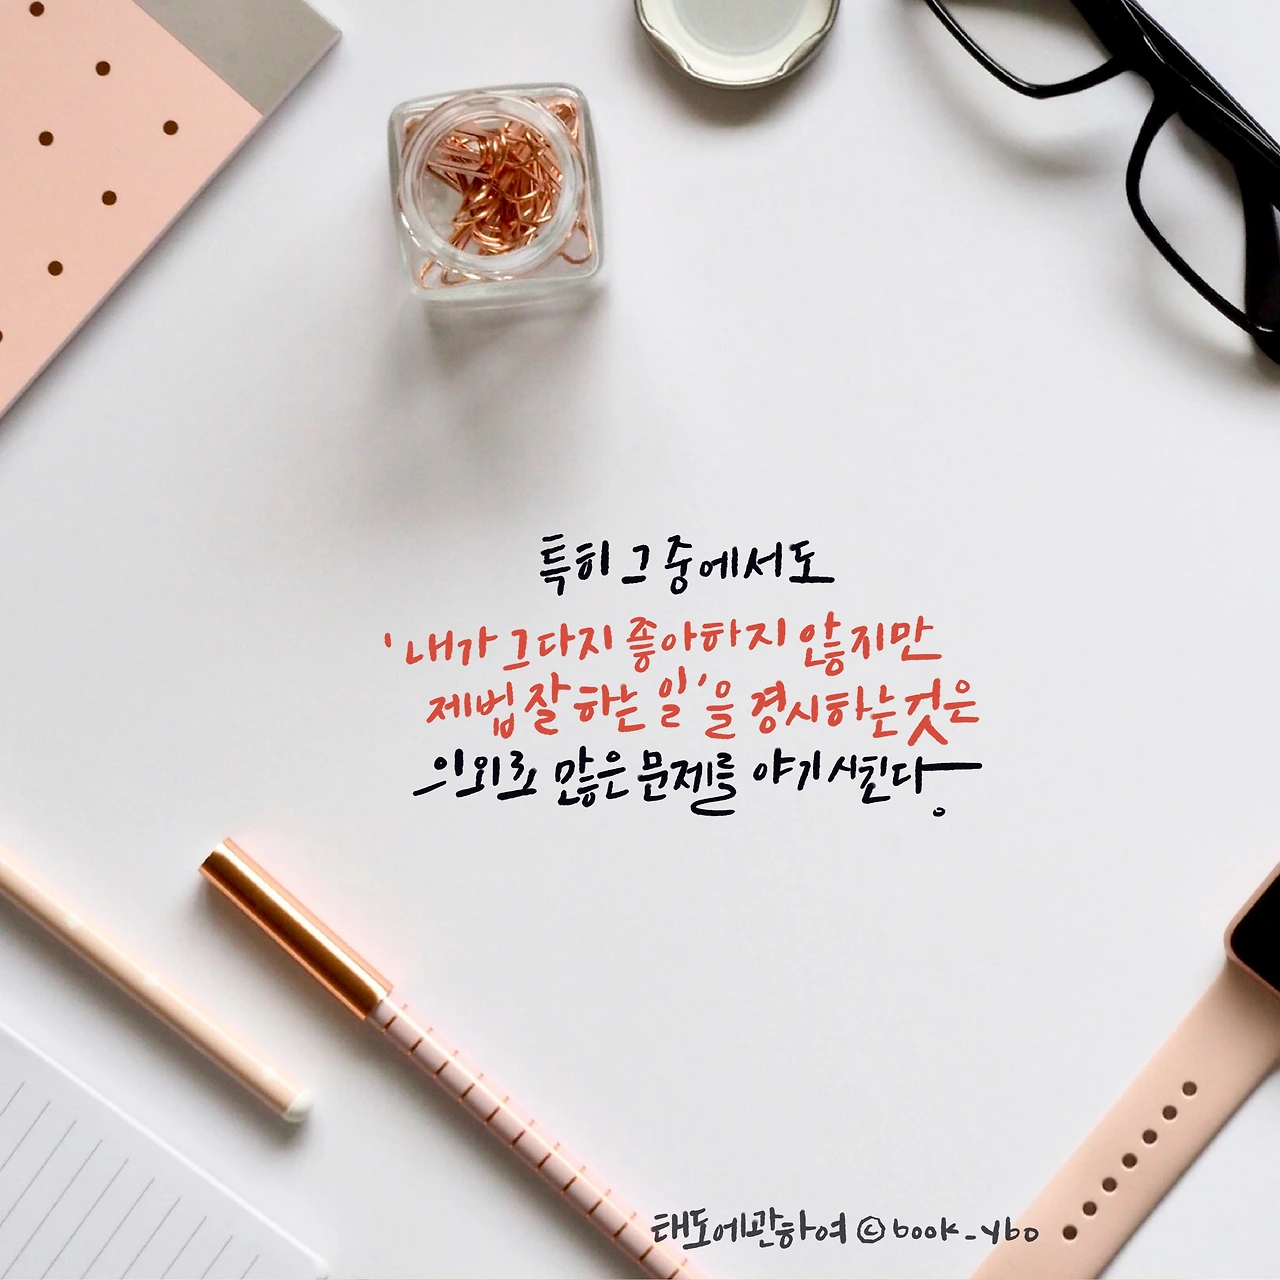 특히 그 중에서도
'내가 그다지 좋아하지 않지만
제법 잘 하는 일'을 경시하는 것은
의외로 많은 문제를 야기시킨다.
태도에관하여 ©book_ybo